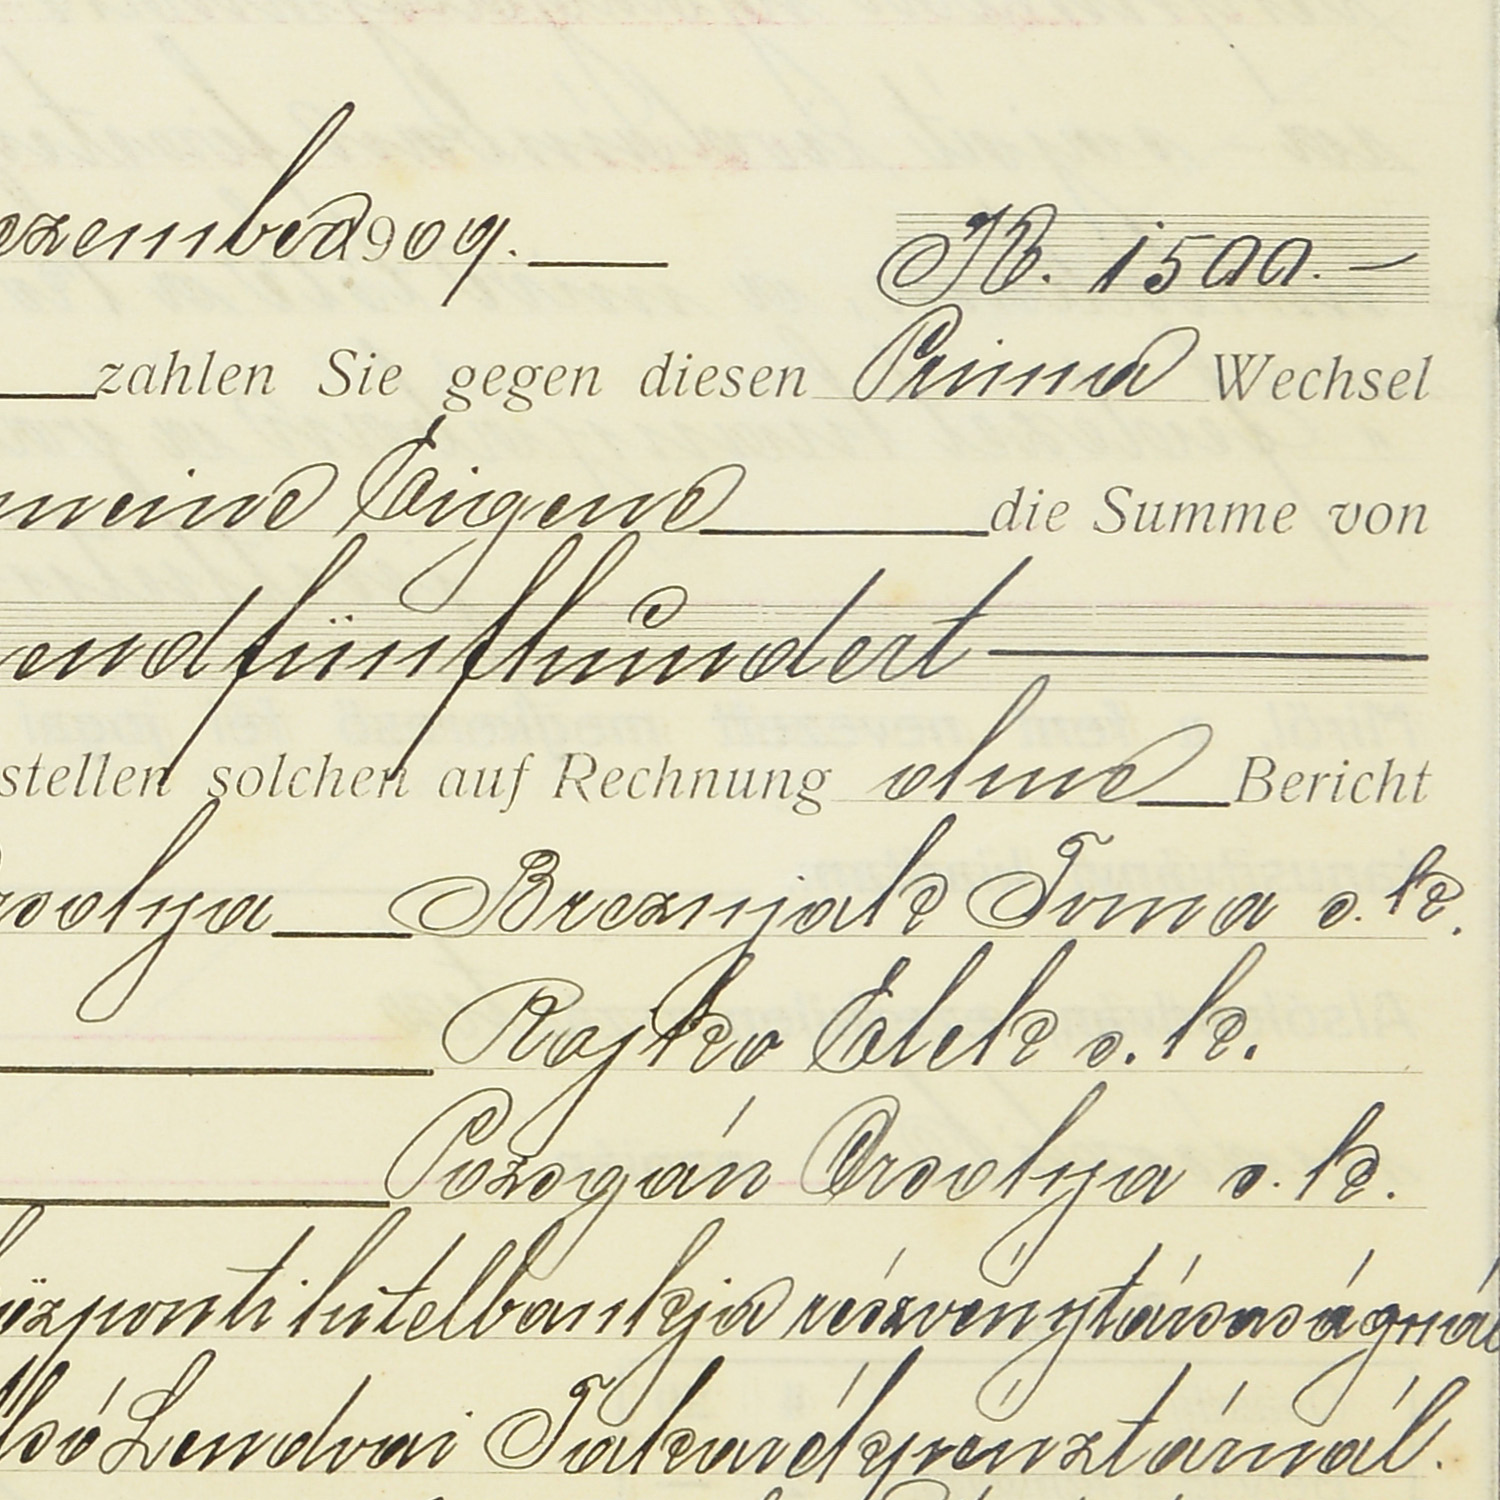 ezember 1909. K. 1500.—
zahlen Sie gegen diesen Prima Wechsel
meine Eigene die Summe von
endfünfhundert
stellen solchen auf Rechnung ohne Bericht
rsolya Breznjak Toma s. k.
Rajko Elek s. k.
Pozsgán Orsolya s. k.
központi hitelbankja részvénytársaságnál
lsó Lendvai Takarékpénztárnál.